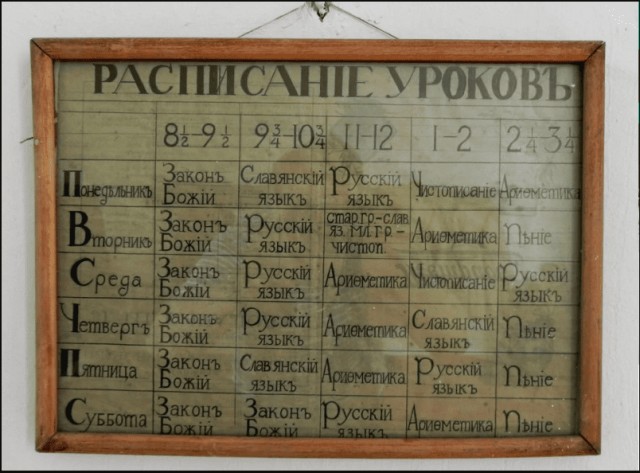 РАСПИСАНІЕ УРОКОВЪ
8½–9½
9¾–10¾
11–12
1–2
2¼–3¼
Понедѣльникъ
Законъ
Божій
Славянскій
языкъ
Русскій
языкъ
Чистописаніе
Ариѳметика
Вторникъ
Законъ
Божій
Русскій
языкъ
стар.гр.–слав.
яз. мл. гр.–
чистоп.
Ариѳметика
Пѣніе
Среда
Законъ
Божій
Русскій
языкъ
Ариѳметика
Чистописаніе
Русскій
языкъ
Четвергъ
Законъ
Божій
Русскій
языкъ
Ариѳметика
Славянскій
языкъ
Пѣніе
Пятница
Законъ
Божій
Славянскій
языкъ
Ариѳметика
Русскій
языкъ
Пѣніе
Суббота
Законъ
Божій
Законъ
Божій
Русскій
языкъ
Ариѳметика
Пѣніе